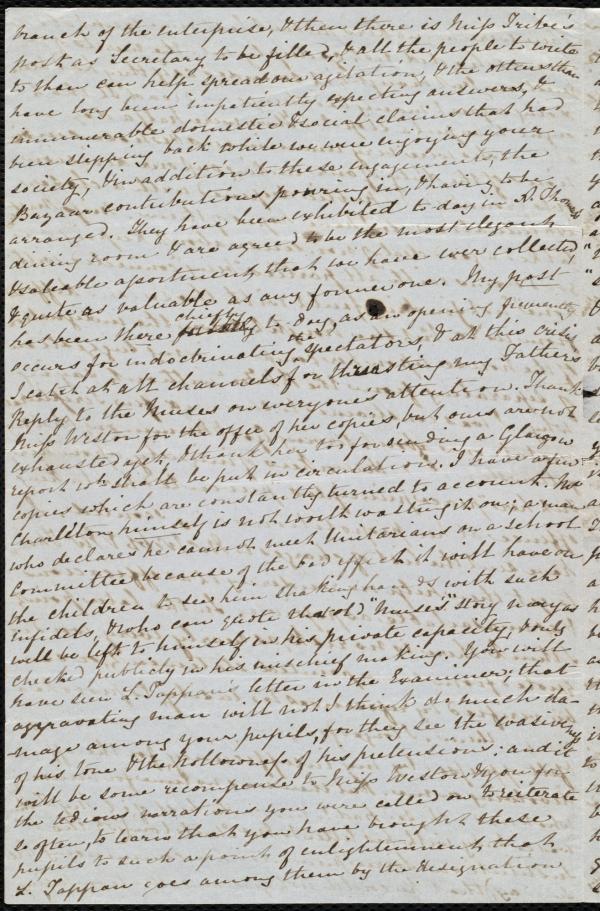 branch of the enterprise, & then there is Miss Tribe's
post as Secretary to be filled, & all the people to write
to than can help spread our agitation, & the others than
have long been impatiently expecting answers, &
innumerable domestic & social claims that had
been slipping back while we were enjoying your
society; & in addition to these engagements, the
Bazaar contributions pouring in, & having to be
arranged. They have been exhibited to day in R Thomas'
dining room & are agreed to be the most elegant
& saleable assortment that we have ever collected,
& quite as valuable as any former one. My post
has been there chiefly to day, as an opening frequently
occurs for indoctrinating the spectators, & at this crisis
I catch at all channels for thrusting my Fathers
Reply to the Nurses on everyone's attention. Thank
Miss Weston for the offer of her copies, but ours are not
exhausted yet, & thank her too for sending a Glasgow
report wh shall be put in circulation. I have a few
copies which are constantly turned to account. Mr
Charlton himself is not worth wasting it on; a man
who declares he cannot meet Unitarians on a School
Committee because of the bad effect it will have on
the children to see him shaking hands with such
infidels, & who can quote that old "Nurse's" story may as
well be left to himself in his private capacity, & only
checked publicly in his mischief making. You will
have seen L. Tappan's letter in the Examiner; that
aggravating man will not I think do much da-
-mage among your pupils, for they see the evasiveness
of his tone & the hollowness of his pretensions; and it
will be some recompense to Miss Weston & you for
the tedious narrations you were called on to reiterate
so often, to learn that you have brought these
pupils to such a point of enlightenment, that
L. Tappan goes among them by the designation